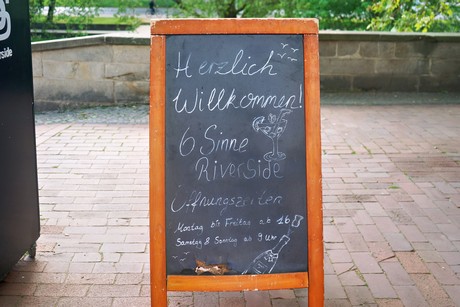 Herzlich
Willkommen!
6 Sinne
RiverSide
Öffnungszeiten
Montag bis Freitag ab 16
Samstag & Sonntag ab 9 Uhr